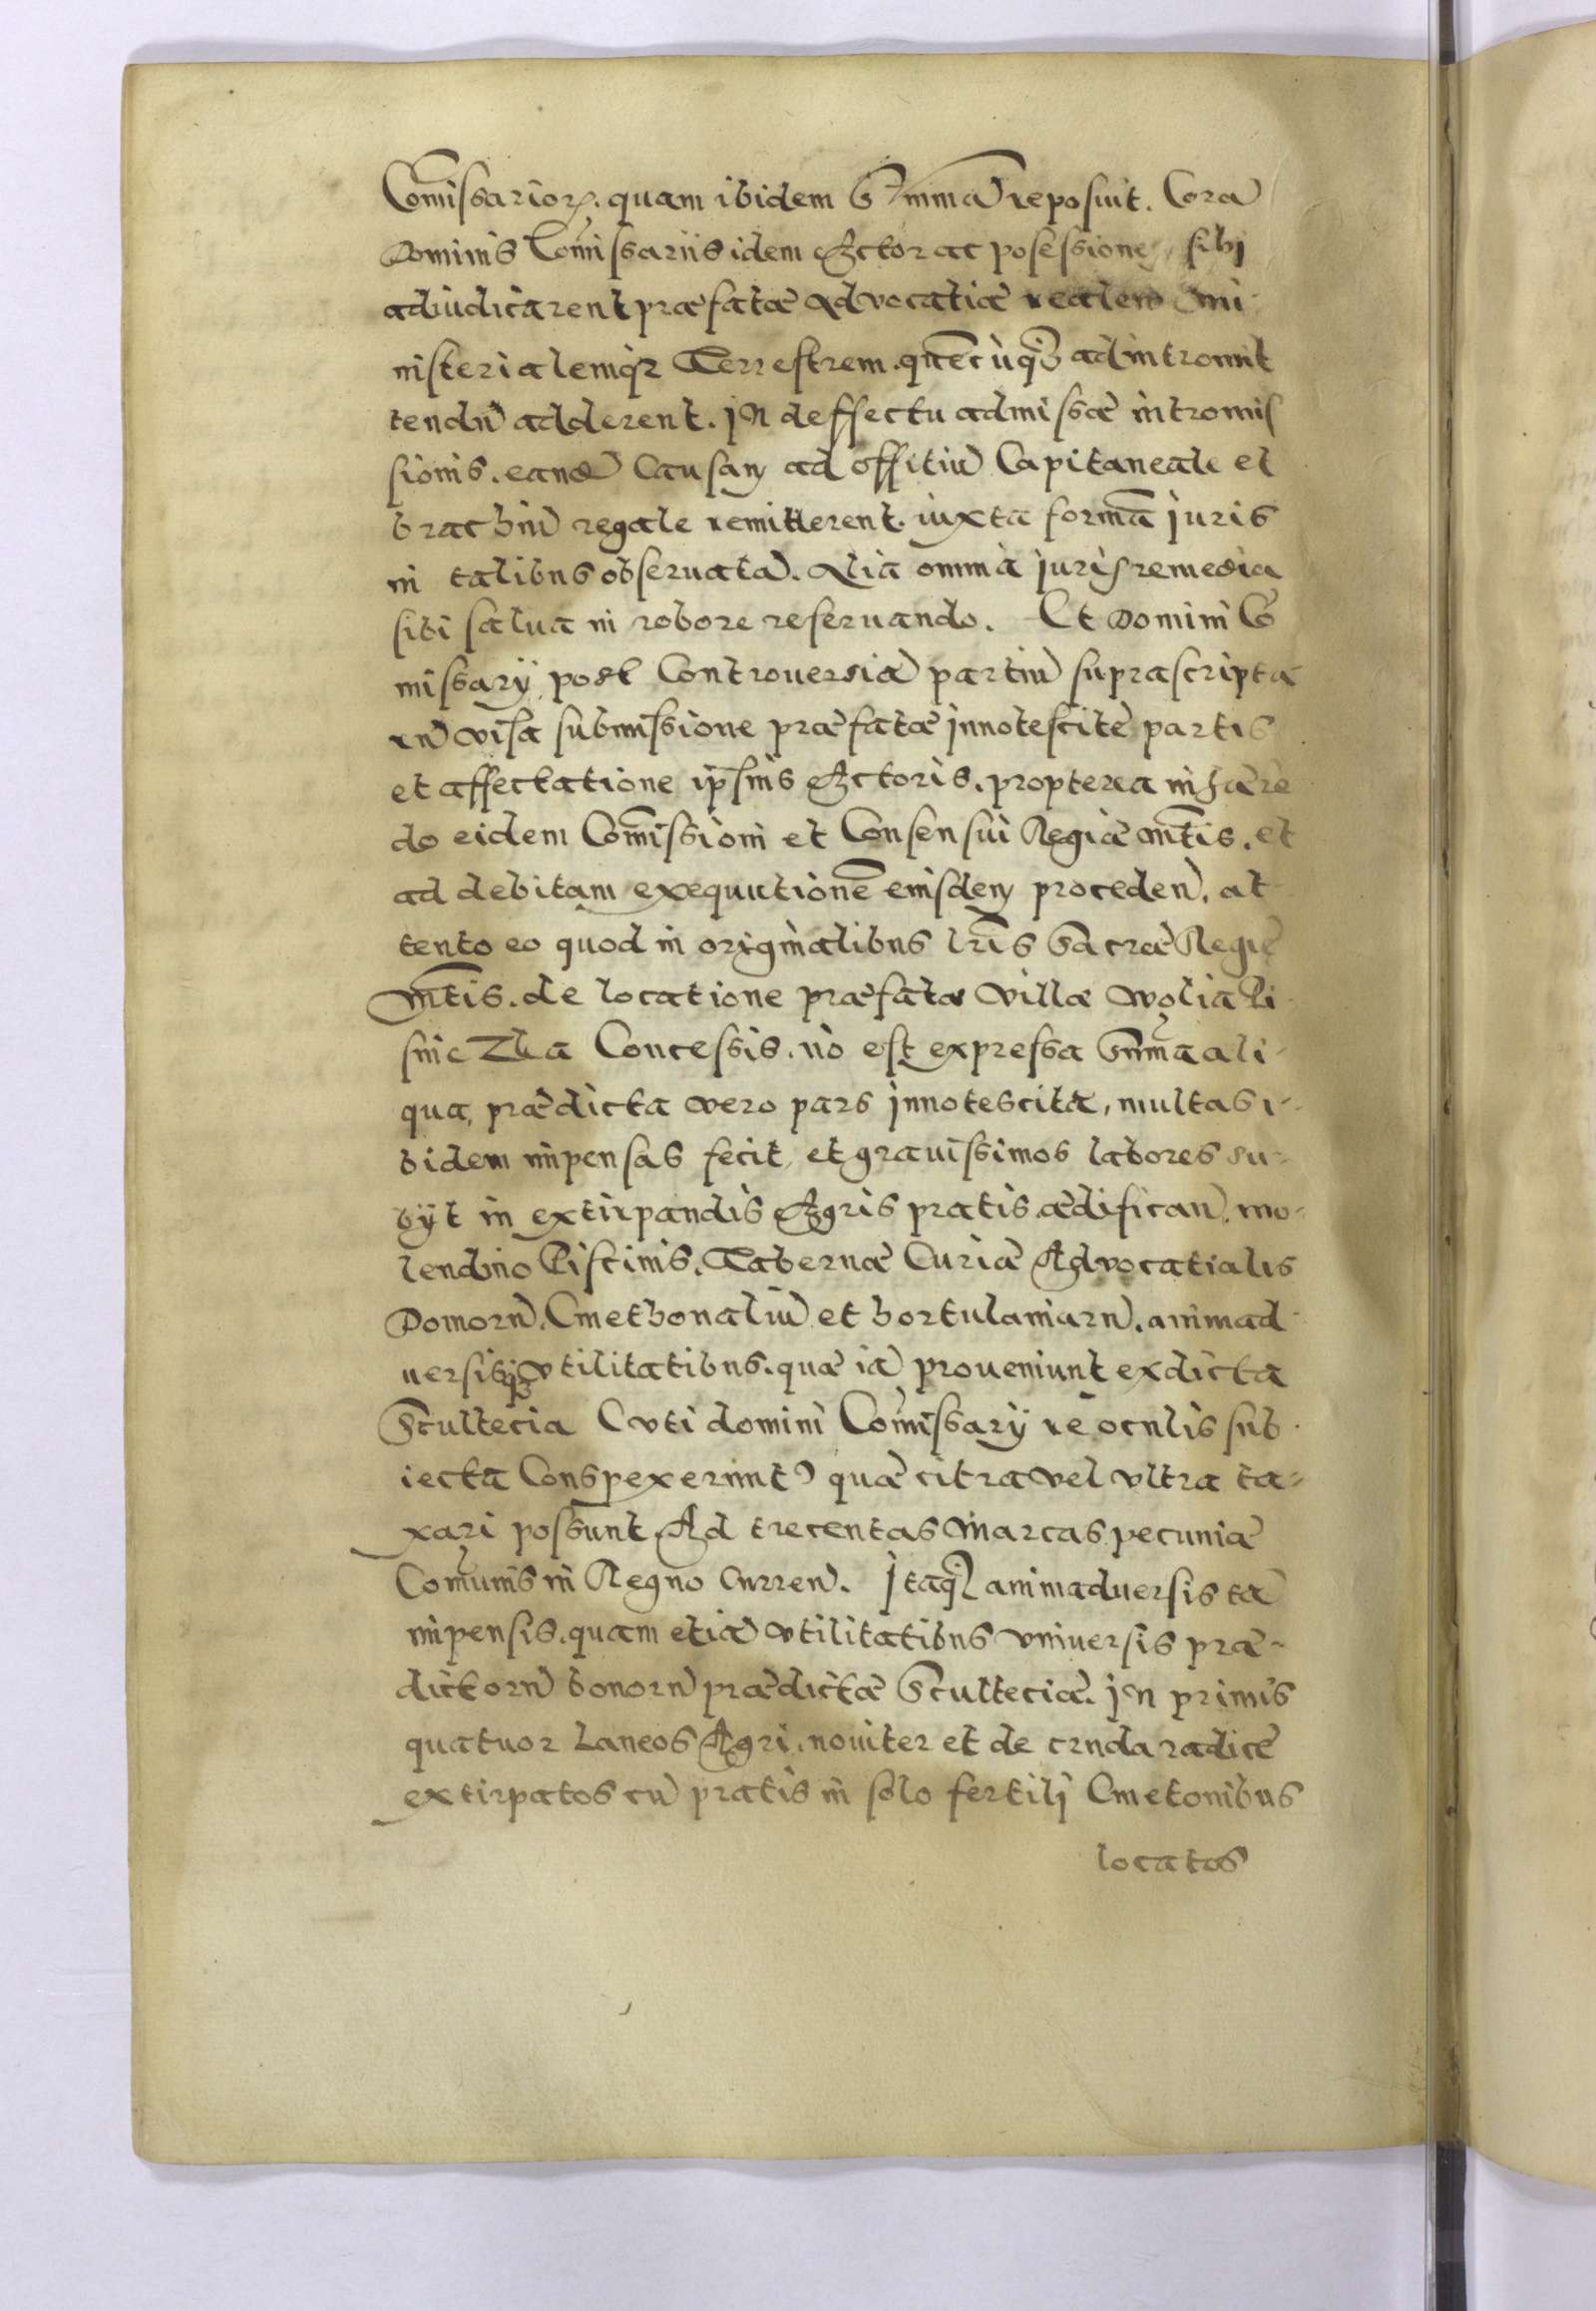 Com̃issarioꝝ. quam ibidem Sum̃mã reposuit. Corã
Dominis Com̃issariis idem Actor ac posessionẽ sibi
adiudicarent præfatæ Advocatiæ realem mi-
nisterialemq́ꝫ Terrestrem. quẽcũq́ꝫ ad intromit
tendũ adderent. In deffectu admissæ intromis
sionis. eandẽ Causam ad offitiũ Capitaneale et
brachiũ regale remitterent. iuxta formã iuris
in talibus obseruatã. Alia omnia iuris remedia
sibi salua in robore reseruando. Et Domini Cõ
missarÿ post Controuersiã partiũ suprascriptã
visa submissione præfatæ innotescitæ partis
et affectatione ip̃sius Actoris. propterea inhærẽ
do eidem Com̃issioni et Consensui Regiæ Mt̃is. et
ad debitam exequutionẽ eiusdem proceden̄. at
tento eo quod in originalibus lr̃is Sacræ Regiæ
Mt̃is. de locatione præfatæ Villæ Wolia Li
sinczka Concessis. nõ est expressa Sum̃a ali-
qua, prædicta vero pars innotescita, multas i-
bidem impensas fecit, et grauissimos labores su-
bÿt in extirpandis Agris pratis ædifican̄. mo-
lendino Piscinis. Tabernæ Curiæ Advocatialis
Domorũ. Cmethonaliũ et hortulaniarũ. animad
uersisq́ꝫ vtilitatibus. quæ iã proueniunt ex dicta
Scultecia (vti domini Com̃issarÿ re oculis sub-
iecta Conspexerunt) quæ citra vel vltra ta-
xari possunt Ad trecentas Marcas pecuniæ
Com̃unis in Regno Curren̄. Itaq́ꝫ animaduersis tã
impensis. quam etiã vtilitatibus vniuersis præ-
dictorũ bonorũ prædictæ Sculteciæ. In primis
quatuor Laneos Agri. nouiter et de cruda radicẽ
extirpatos cũ pratis in solo fertili Cmetonibus
locatos